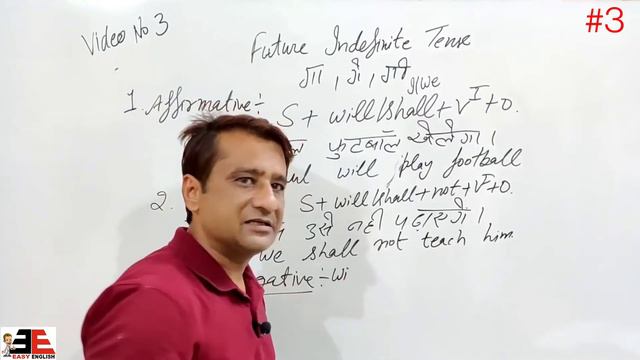 #3
Video No 3
Future Indefinite Tense
गा, गे, गी
I/we
1. Affirmative :- S + will/shall + V I + O.
फुटबॉल खेलेगा।
will play football
2. S + will/shall + not + V I + O.
उसे नहीं पढ़ाएंगे।
we shall not teach him.
gative :- Wi
EE
EASY ENGLISH